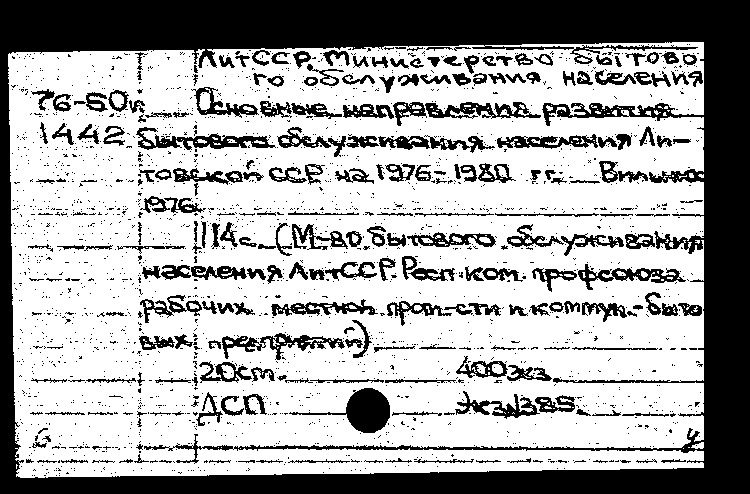 ЛитССР. Министерство бытово-
го обслуживания населения
76-50и Основные направления развития
1442 бытового обслуживания населения Ли-
товской ССР на 1976-1980 гг. Вильнюс
1976
114с. (М-во бытового обслуживания
населения ЛитССР. Респ. ком. профсоюза
рабочих местной пром-сти и коммун.-быто
вых предприятий).
20см. 400экз.
ДСП Экз№385.
б у